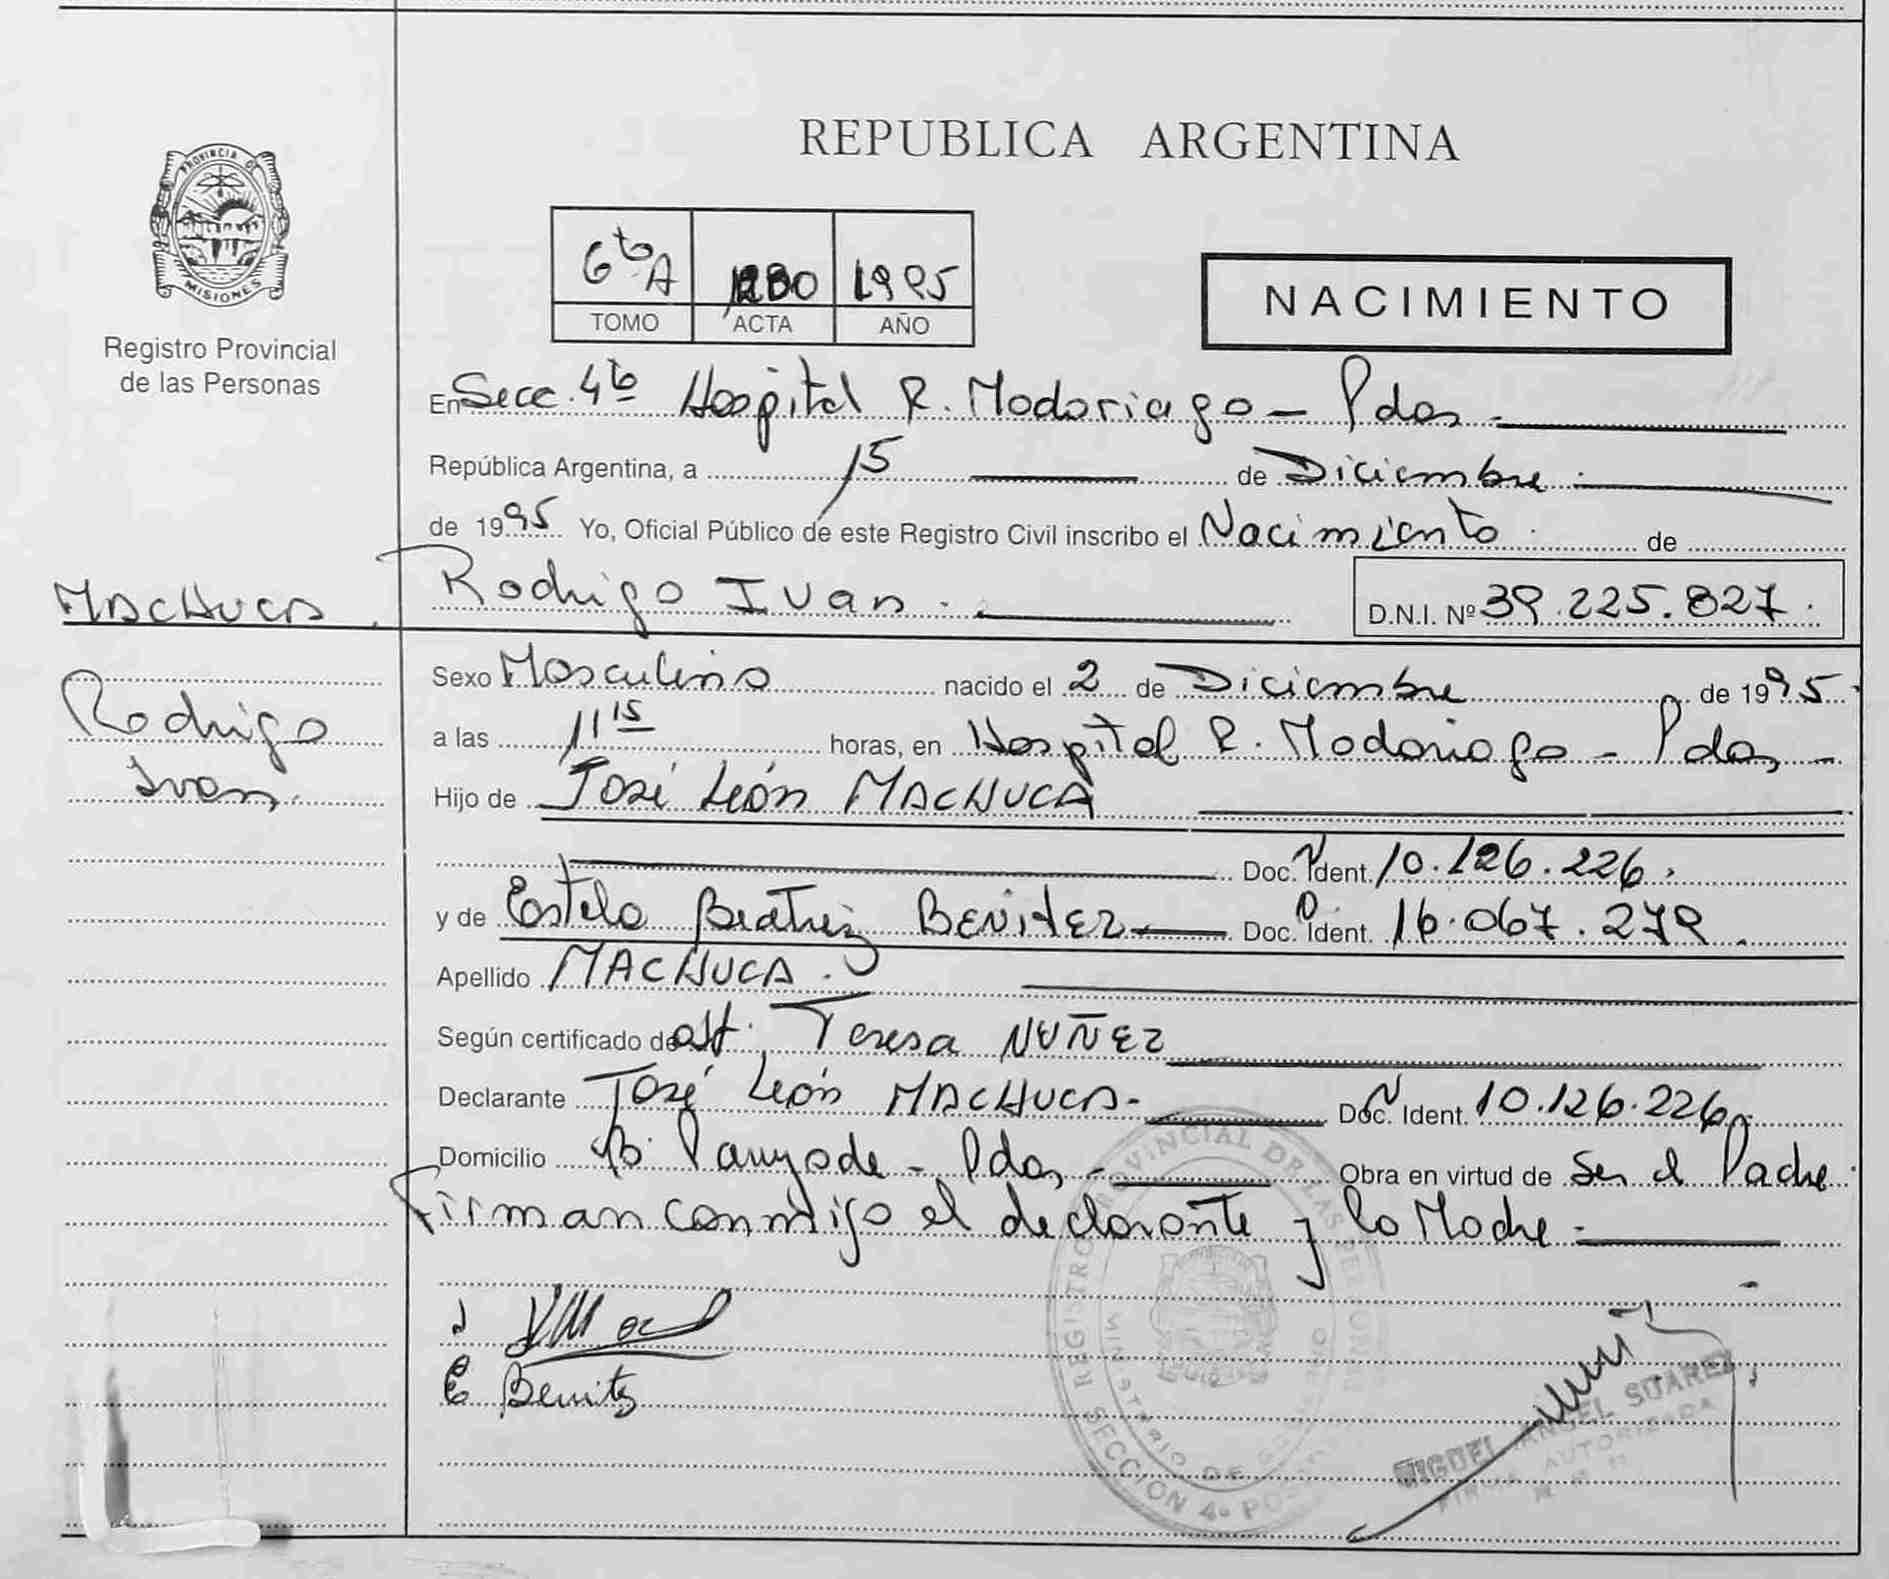 PROVINCIA DE
MISIONES
Registro Provincial
de las Personas
REPUBLICA ARGENTINA
6to A 1995
TOMO ACTA AÑO
NACIMIENTO
En Secc. 4ta Hospital R. Madariaga - Pdas -
República Argentina, a 15 de Diciembre
de 1995 Yo, Oficial Público de este Registro Civil inscribo el Nacimiento de
MACHUCA Rodrigo Ivan. D.N.I. Nº 39.225.827.
Rodrigo
Ivan.
Sexo Masculino nacido el 2 de Diciembre de 1995.
a las 11 15 horas, en Hospital R. Madariaga - Pdas -
Hijo de José León MACHUCA
Doc. Ident. 10.126.226.
y de Estela Beatriz BENITEZ Doc. Ident. 16.067.279.
Apellido MACHUCA.
Según certificado de Obst. Teresa NUÑEZ
Declarante José León MACHUCA- Doc. Ident. 10.126.226.
Domicilio Bº - Pdas - Obra en virtud de Ser el Padre.
Firman conmigo el declarante y la Madre -
E Benitez
REGISTRO PROVINCIAL DE LAS PERSONAS
MINISTERIO DE GOBIERNO
SECCION 4ª
MIGUEL ANGEL SUAREZ
FIRMA AUTORIZADA